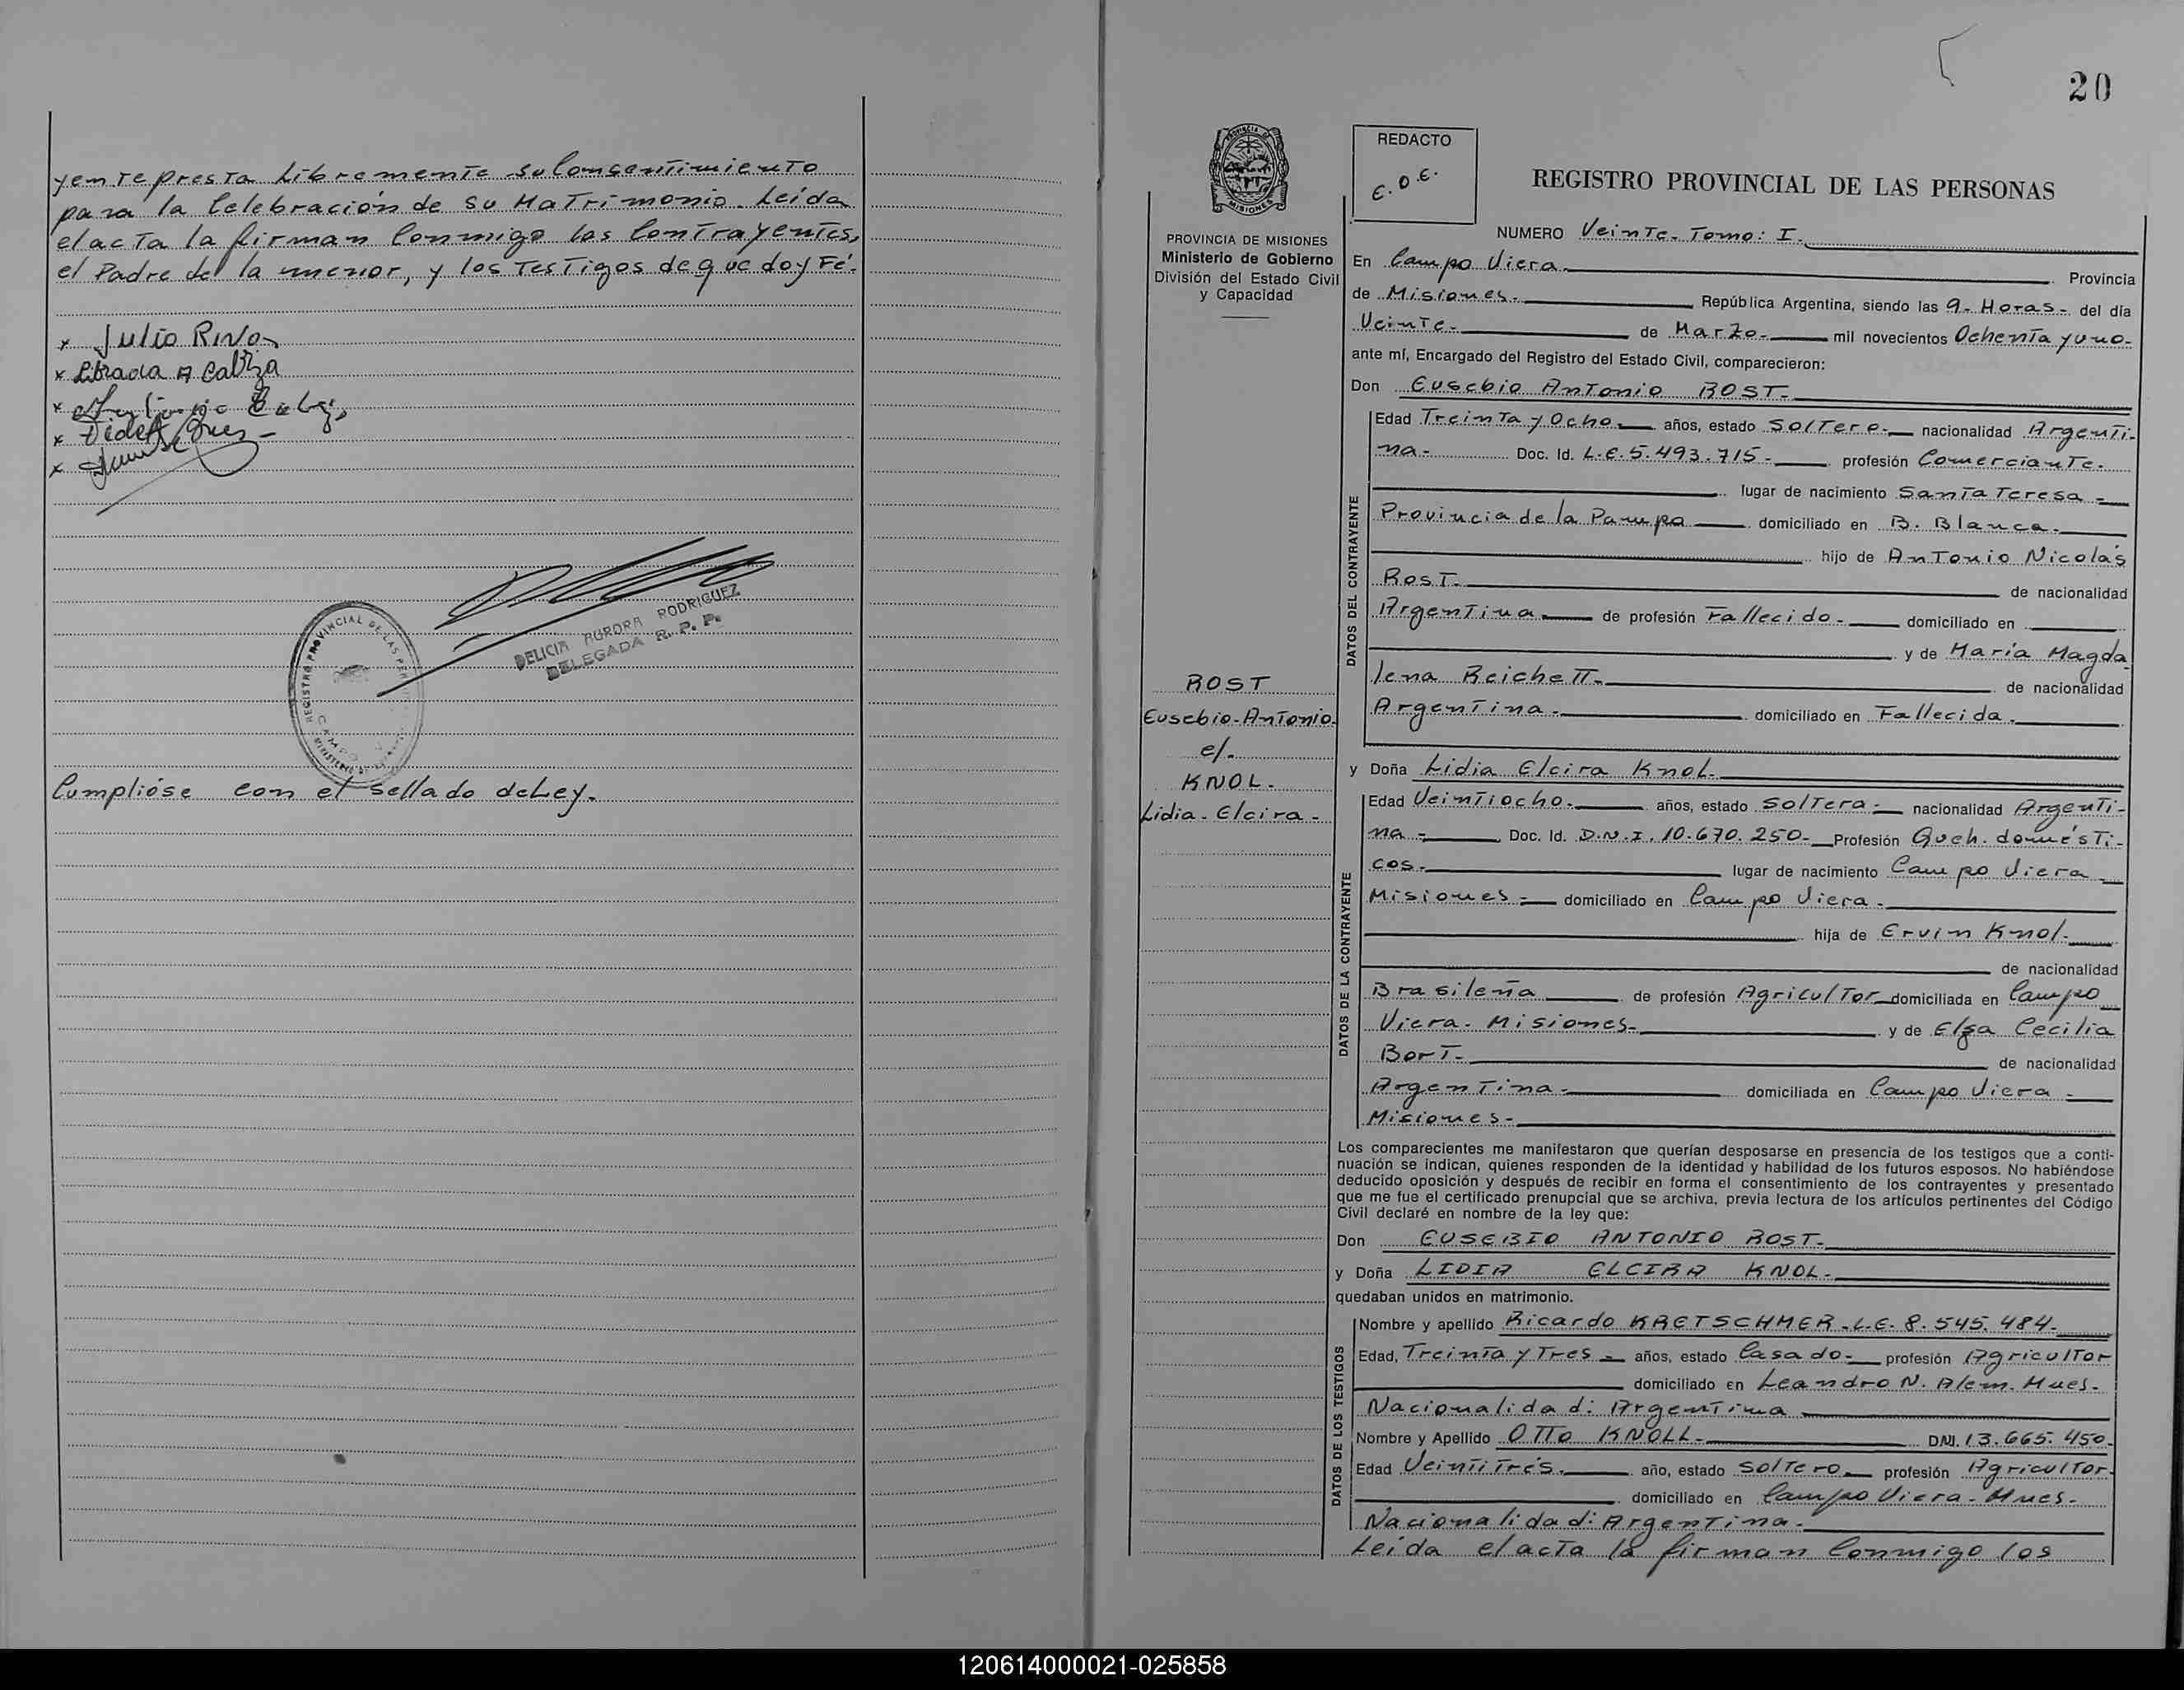 yente presta Libremente su Consentimiento
para la Celebración de su Matrimonio. Leída
el acta la firman Conmigo los Contrayentes,
el Padre de la menor, y los Testigos de que doy Fé.
x Julio Rivas
x Librada A Cabiza
x
x
x
DELICIA AURORA RODRIGUEZ
DELEGADA R. P. P.
REGISTRO PROVINCIAL DE LAS
CAMPO
Cumplióse con el Sellado de Ley.
20
PROVINCIA DE
MISIONES
REDACTO
E.O.E.
REGISTRO PROVINCIAL DE LAS PERSONAS
PROVINCIA DE MISIONES
Ministerio de Gobierno
División del Estado Civil
y Capacidad
NUMERO Veinte. Tomo: I.
En Campo Viera. Provincia
de Misiones. República Argentina, siendo las 9. Horas. del día
Veinte. de Marzo. mil novecientos Ochenta y uno.
ante mí, Encargado del Registro del Estado Civil, comparecieron:
Don Eusebio Antonio ROST.
DATOS DEL CONTRAYENTE
Edad Treinta y Ocho años, estado Soltero. nacionalidad Argenti-
na. Doc. Id. L.E. 5.493.715. profesión Comerciante.
lugar de nacimiento Santa Teresa
Provincia de la Pampa domiciliado en B. Blanca.
hijo de Antonio Nicolás
Rost. de nacionalidad
Argentina de profesión Fallecido. domiciliado en
y de María Magda
lena Reichett. de nacionalidad
Argentina. domiciliado en Fallecida.
ROST
Eusebio-Antonio.
c/.
KNOL.
Lidia-Elcira-
y Doña Lidia Elcira Knol.
DATOS DE LA CONTRAYENTE
Edad Veintiocho. años, estado Soltera. nacionalidad Argenti-
na Doc. Id. D.N.I. 10.670.250. Profesión Queh. domésti-
cos. lugar de nacimiento Campo Viera
Misiones domiciliado en Campo Viera.
hija de Ervin Knol.
de nacionalidad
Brasileña de profesión Agricultor domiciliada en Campo
Viera. Misiones. y de Elza Cecilia
Bort. de nacionalidad
Argentina. domiciliada en Campo Viera
Misiones.
Los comparecientes me manifestaron que querían desposarse en presencia de los testigos que a conti-
nuación se indican, quienes responden de la identidad y habilidad de los futuros esposos. No habiéndose
deducido oposición y después de recibir en forma el consentimiento de los contrayentes y presentado
que me fue el certificado prenupcial que se archiva, previa lectura de los artículos pertinentes del Código
Civil declaré en nombre de la ley que:
Don EUSEBIO ANTONIO ROST.
y Doña LIDIA ELCIRA KNOL.
quedaban unidos en matrimonio.
DATOS DE LOS TESTIGOS
Nombre y apellido Ricardo KRETSCHMER. L.E. 8.545.484.
Edad, Treinta y Tres años, estado Casado. profesión Agricultor
domiciliado en Leandro N. Alem. Mnes.
Nacionalidad: Argentina
Nombre y Apellido OTTO KNOLL. DNI. 13.665.450.
Edad Veintitrés. año, estado Soltero profesión Agricultor.
domiciliado en Campo Viera. Mnes.
Nacionalidad: Argentina.
Leída el acta la firman Conmigo los
120614000021-025858